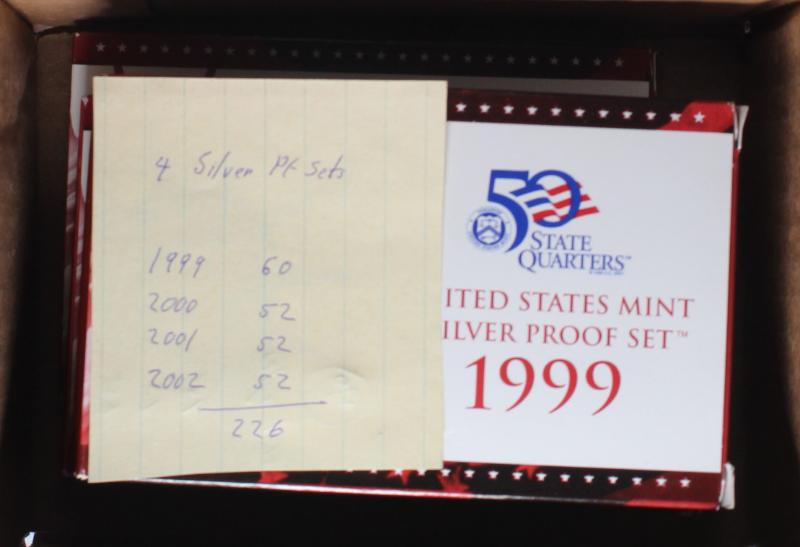 4 Silver Pf Sets
1999 60
2000 52
2001 52
2002 52
226
50
STATE
QUARTERS™
ITED STATES MINT
ILVER PROOF SET™
1999